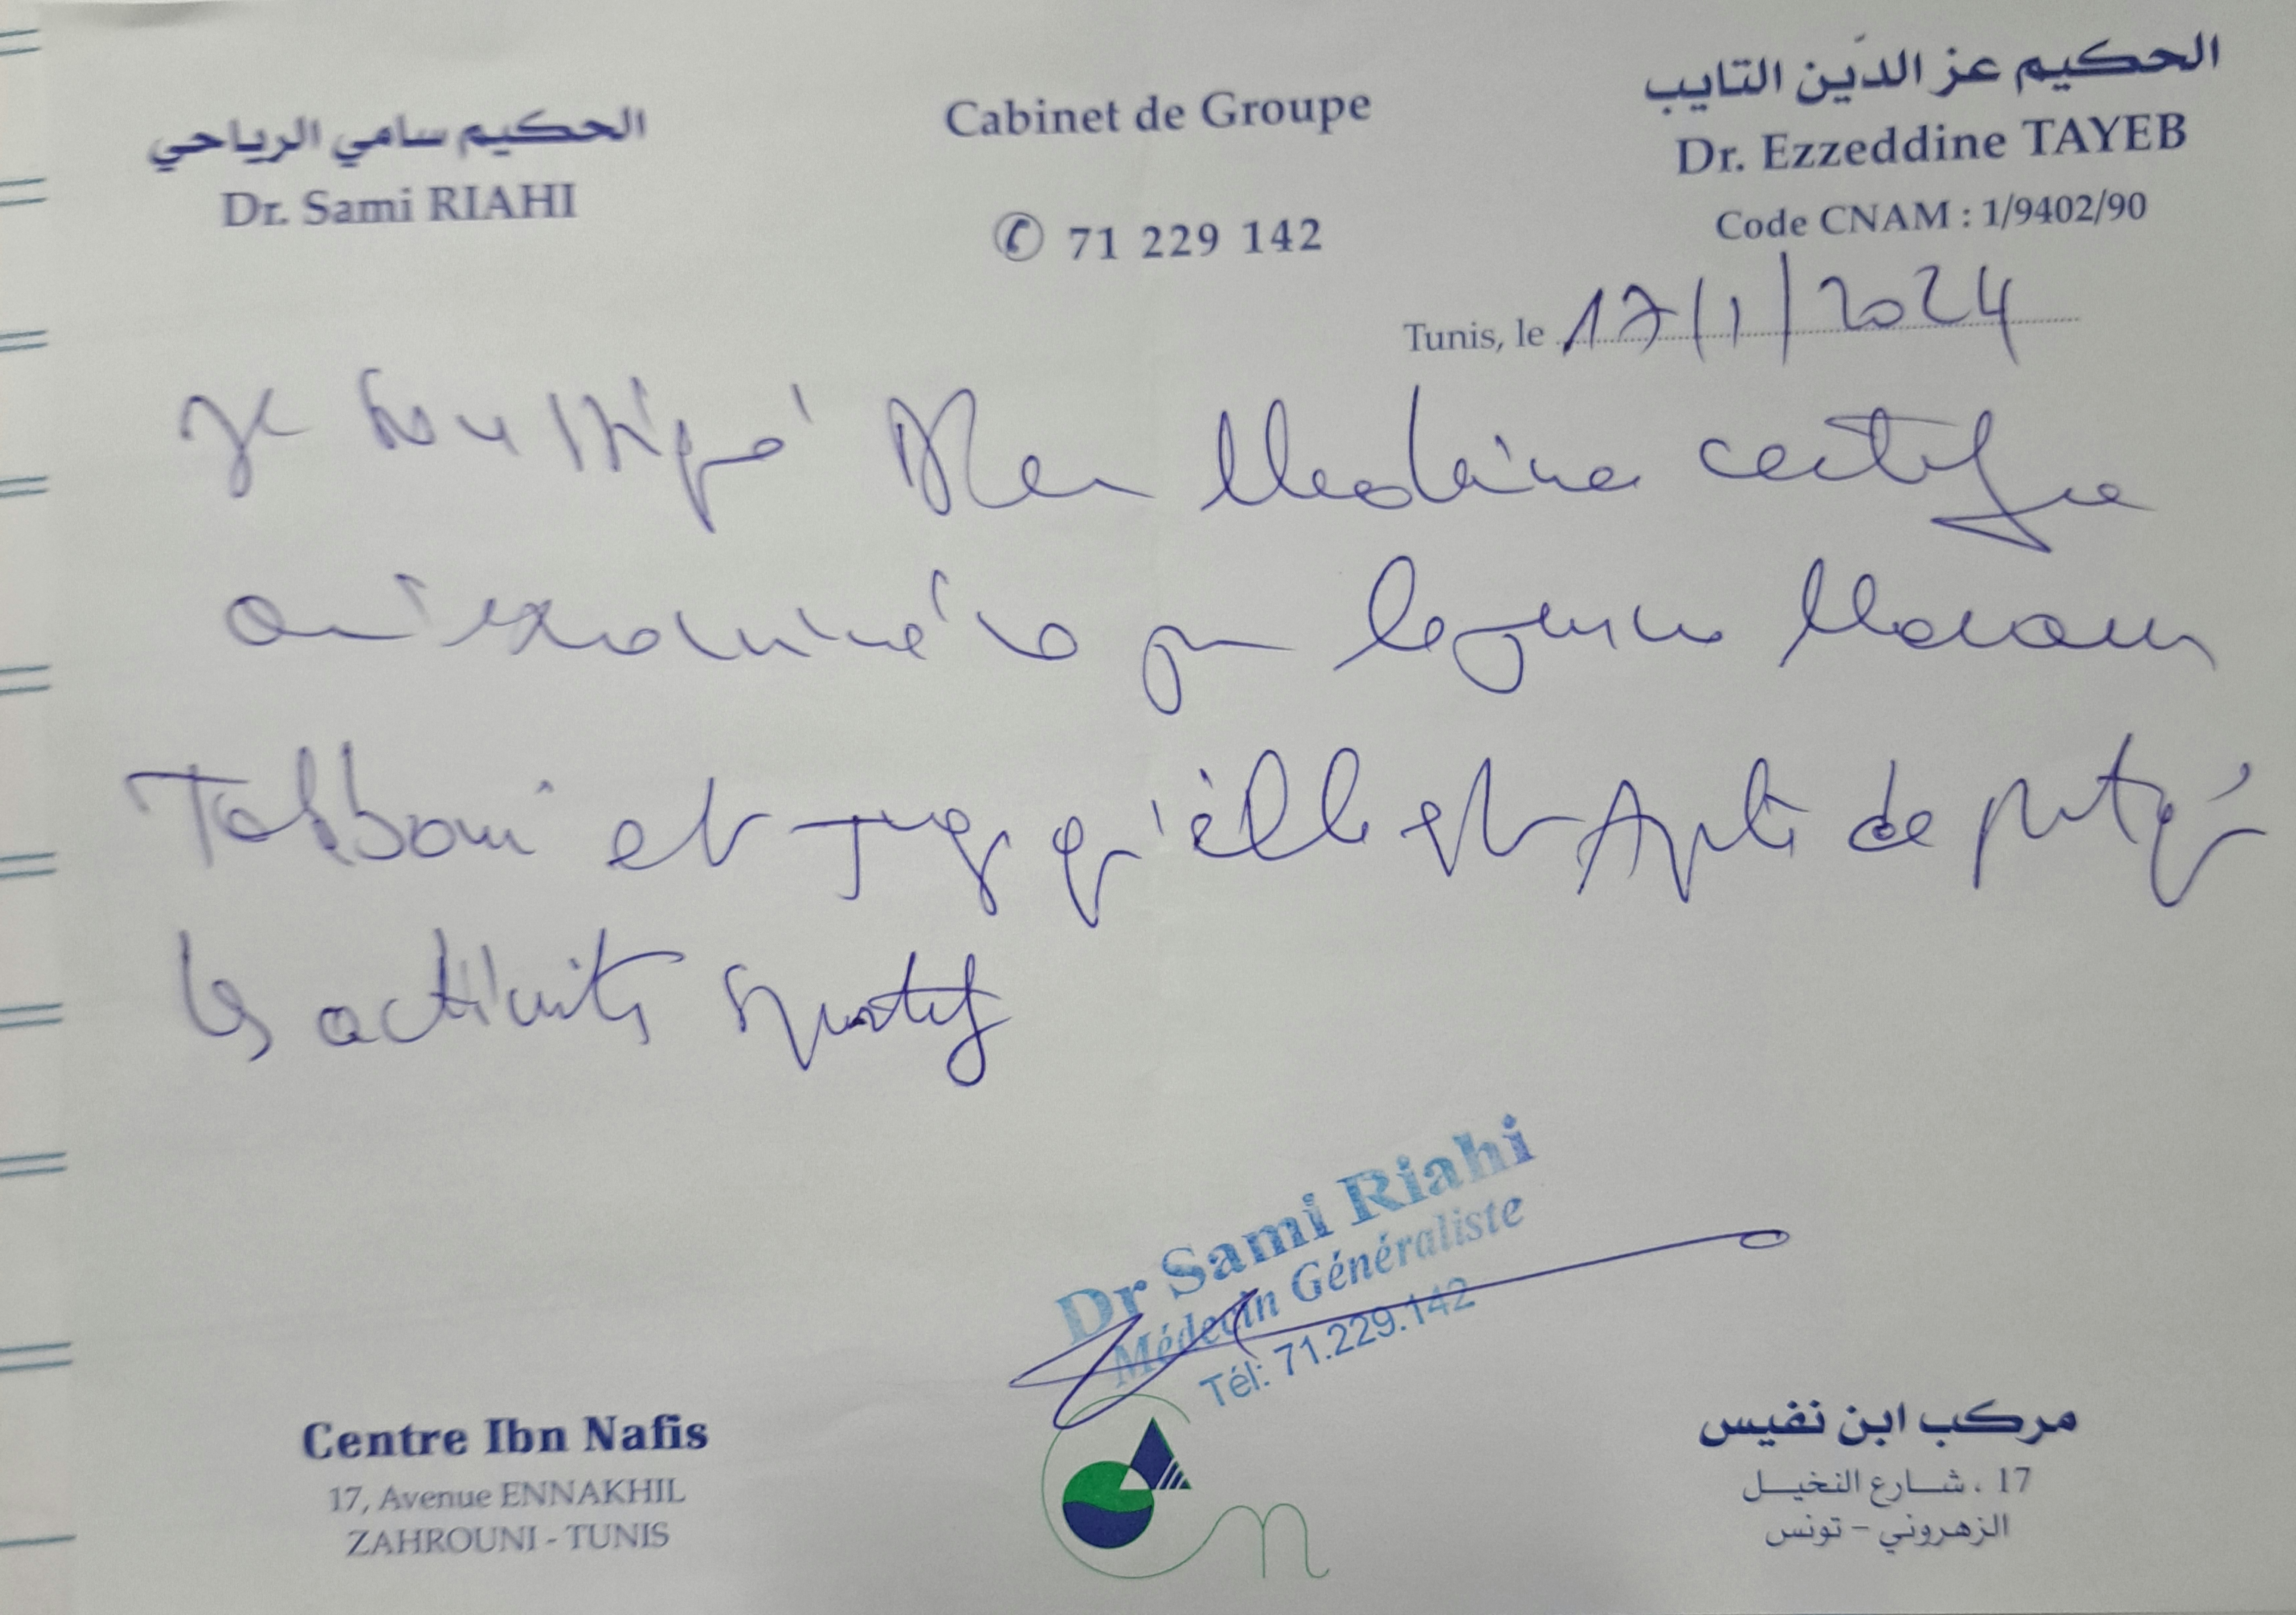 الحكيم سامي الرياحي
Dr. Sami RIAHI
Cabinet de Groupe
✆ 71 229 142
الحكيم عز الدّين التايب
Dr. Ezzeddine TAYEB
Code CNAM : 1/9402/90
Tunis, le 17/1/2024
Je soussigné Dr en Medecine certifie
examiné ce jour
et juge qu'elle est Apte de pratiqué
les activités sportif
Dr Sami Riahi
Médecin Généraliste
Tél: 71.229.142
Centre Ibn Nafis
17, Avenue ENNAKHIL
ZAHROUNI - TUNIS
مركب ابن نفيس
17 ، شارع النخيل
الزهروني - تونس